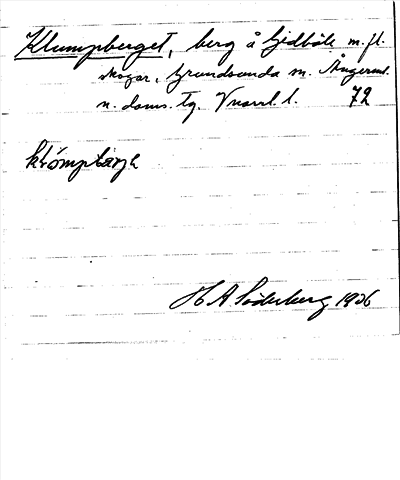 Klumpberget, berg å Gidböle m.fl.
skogar, Grundsunda sn. Ångerml.
n. doms. tg. Vnorrl. l. 72
klómpbärjə
H A Söderberg 1926